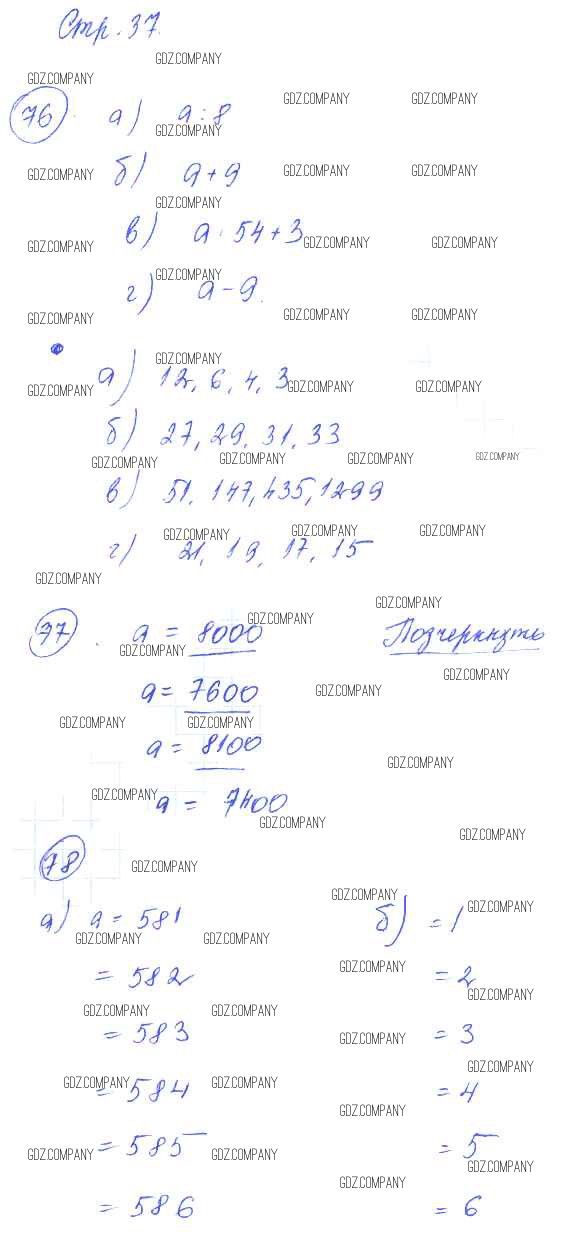 Стр. 37.
76. а) а : 8
б) а + 9
в) а · 54 + 3
г) а - 9.
а) 12, 6, 4, 3
б) 27, 29, 31, 33
в) 51, 147, 435, 1299
г) 21, 19, 17, 15
77. а = 8000 Подчеркнуть
а = 7600
а = 8100
а = 7400
78
а) а = 581 б) = 1
= 582 = 2
= 583 = 3
= 584 = 4
= 585 = 5
= 586 = 6
GDZ.COMPANY